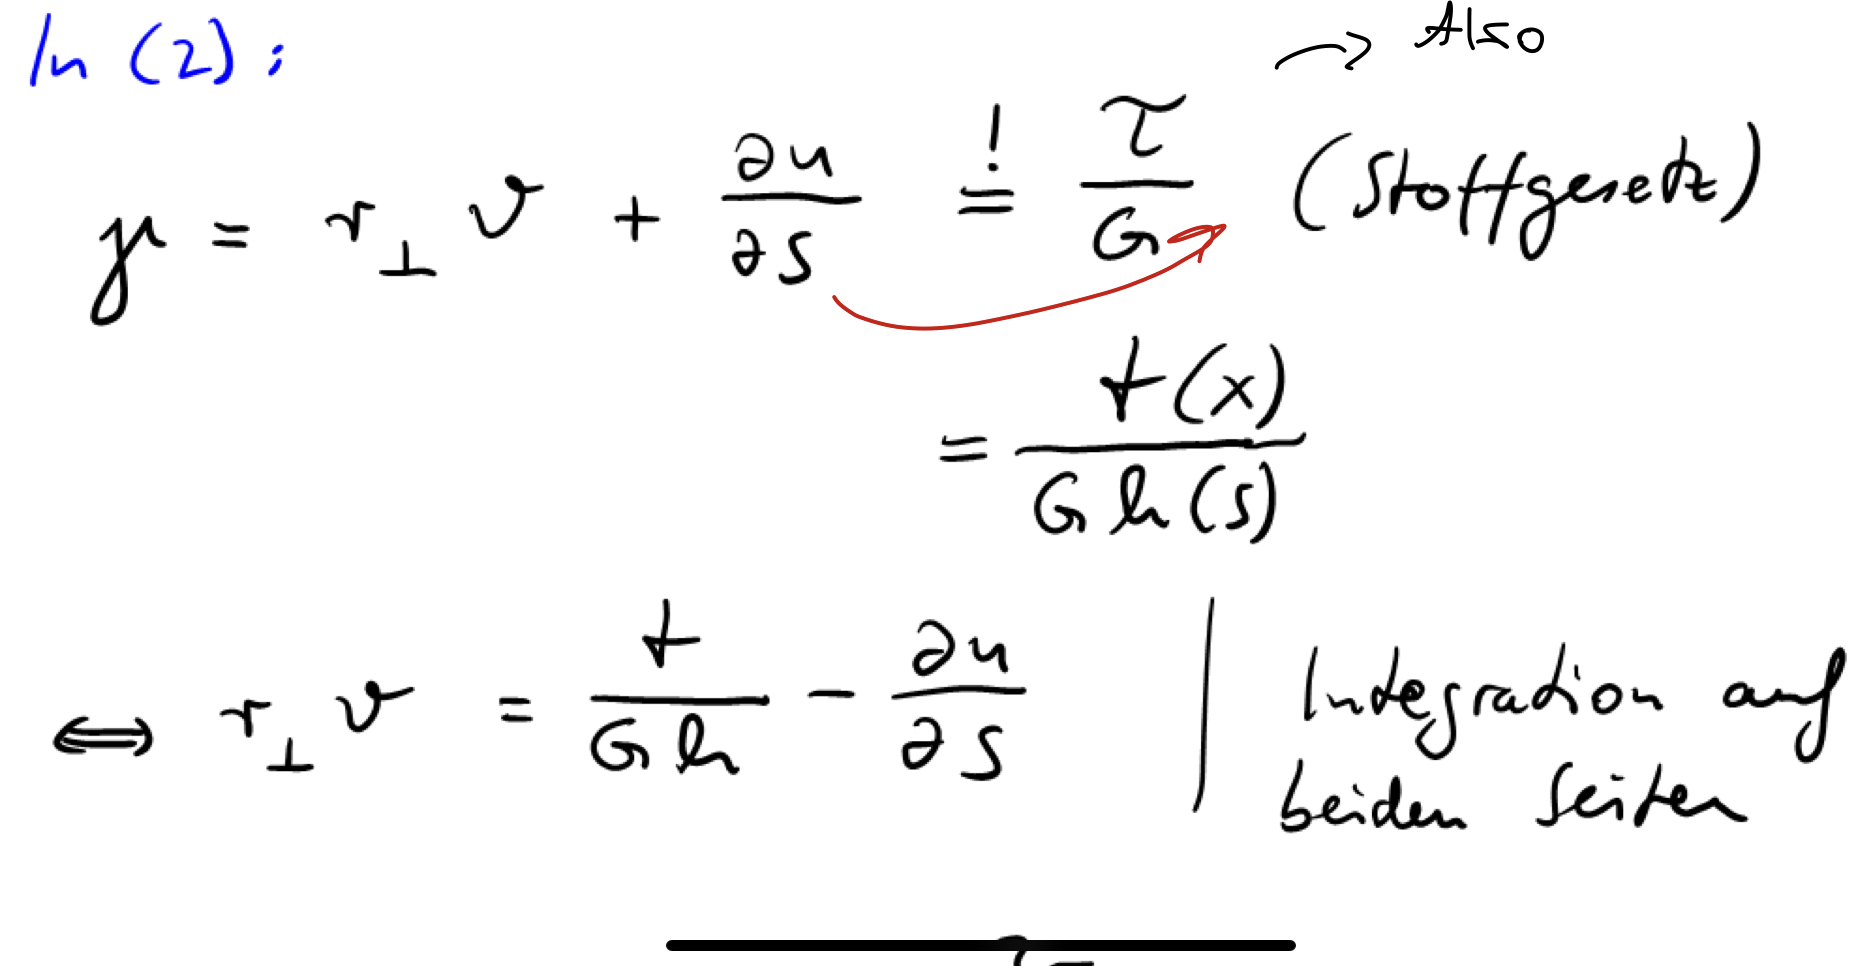 In (2): → Also
γ = r⊥ ϑ + ∂u/∂s =! τ/G (Stoffgesetz)
= t(x)/(G h(s))
⇔ r⊥ ϑ = t/(G h) − ∂u/∂s | Integration auf
beiden Seiten